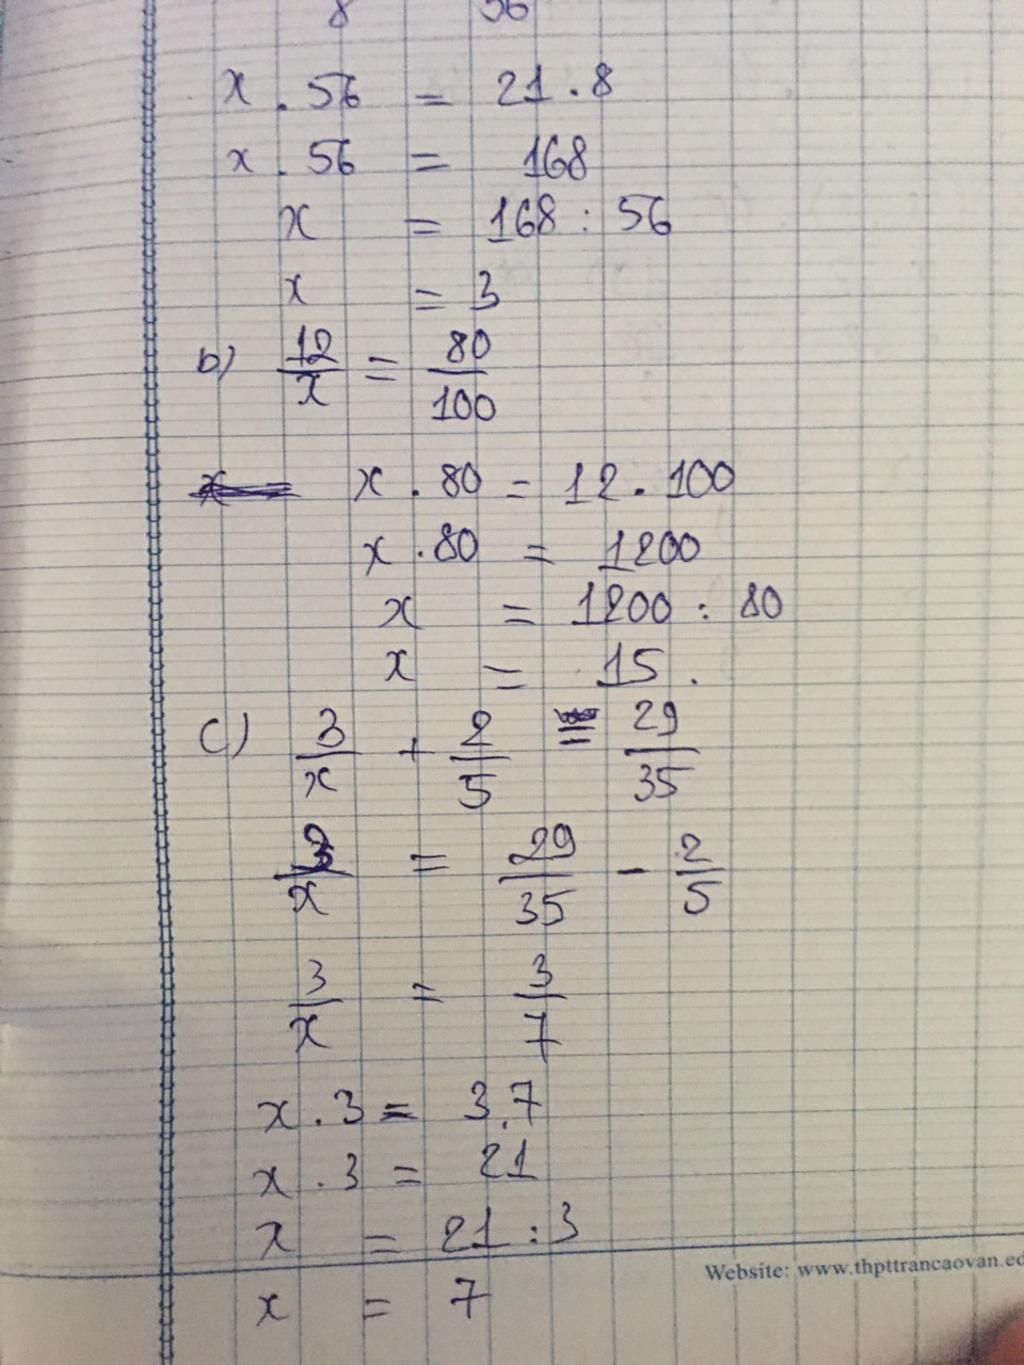 8 56
x . 56 = 21 . 8
x . 56 = 168
x = 168 : 56
x = 3
b) 12/x = 80/100
x . 80 = 12 . 100
x . 80 = 1200
x = 1200 : 80
x = 15.
c) 3/x + 2/5 = 29/35
3/x = 29/35 - 2/5
3/x = 3/7
x . 3 = 3.7
x . 3 = 21
x = 21 : 3
Website: www.thpttrancaovan.ed
x = 7